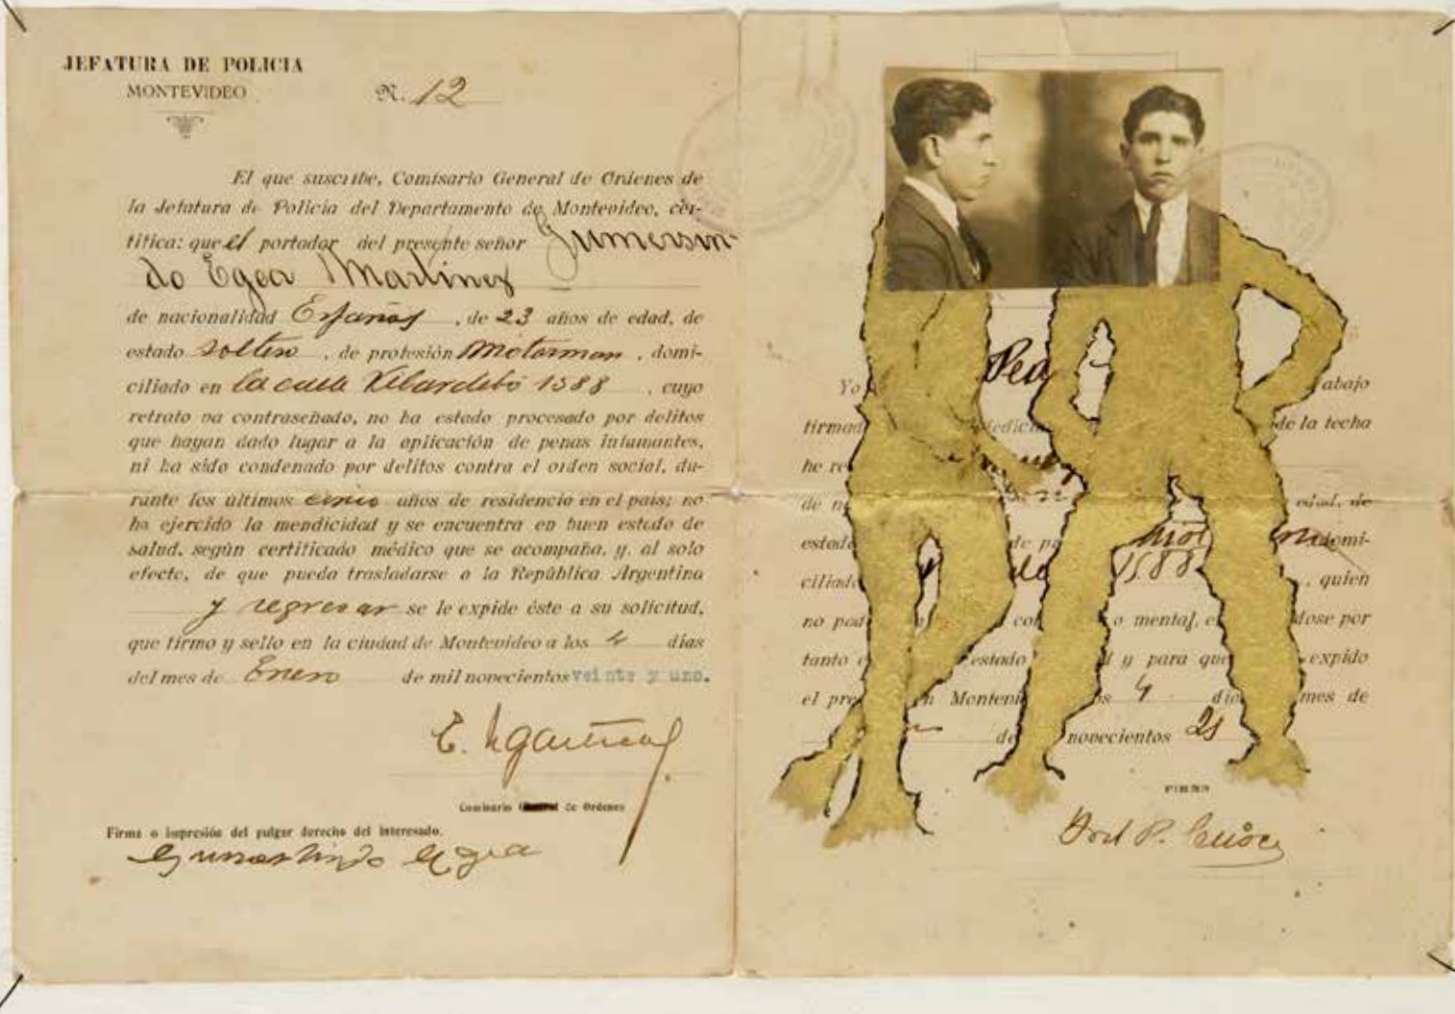 JEFATURA DE POLICIA
MONTEVIDEO
N. 12
El que suscribe, Comisario General de Ordenes de
la Jefatura de Policía del Departamento de Montevideo, cer-
tifica: que el portador del presente señor Gumersin-
do Egea Martinez
de nacionalidad Español, de 23 años de edad, de
estado soltero, de profesión Motorman, domi-
ciliado en la calle 1588, cuyo
retrato va contraseñado, no ha estado procesado por delitos
que hayan dado lugar a la aplicación de penas infamantes,
ni ha sido condenado por delitos contra el orden social, du-
rante los últimos cinco años de residencia en el país; no
ha ejercido la mendicidad y se encuentra en buen estado de
salud, según certificado médico que se acompaña, y, al solo
efecto, de que pueda trasladarse a la República Argentina
y regresar se le expide éste a su solicitud,
que firmo y sello en la ciudad de Montevideo a los 4 días
del mes de Enero de mil novecientos veinte y uno.
Comisario de Ordenes
Firma o impresión del pulgar derecho del interesado.
Gumersindo Egea
Yo Ped abajo
firmad Medici de la fecha
he re
de n edad, de
estado de p mot n domi-
ciliado de 1588, quien
no pod co o mental, e dose por
tanto e estado d y para que expido
el pre n Montevi os 4 día mes de
de novecientos 21
FIRMA